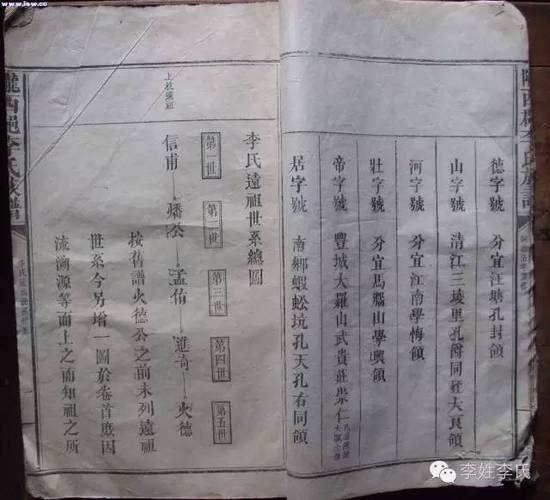 www.lsw.cc
德字號 分宜汪塘孔封領
山字號 清江三堎里孔
河字號 分宜江南學悔領
壯字號 分宜馬
帝字號 豐城大羅山武貴莊崇仁
居字號 南鄉蝦蚣坑孔天孔右同領
李氏遠祖世系總圖
第一世 第二世 第三世 第四世 第五世
上杭遠祖
信甫 燔公 孟佑 進奇 火德
按舊譜火德公之前未列遠祖
世系今另增一圖於卷首庶因
流溯源等而上之而知祖之所
隴西 李氏族譜
李姓李氏